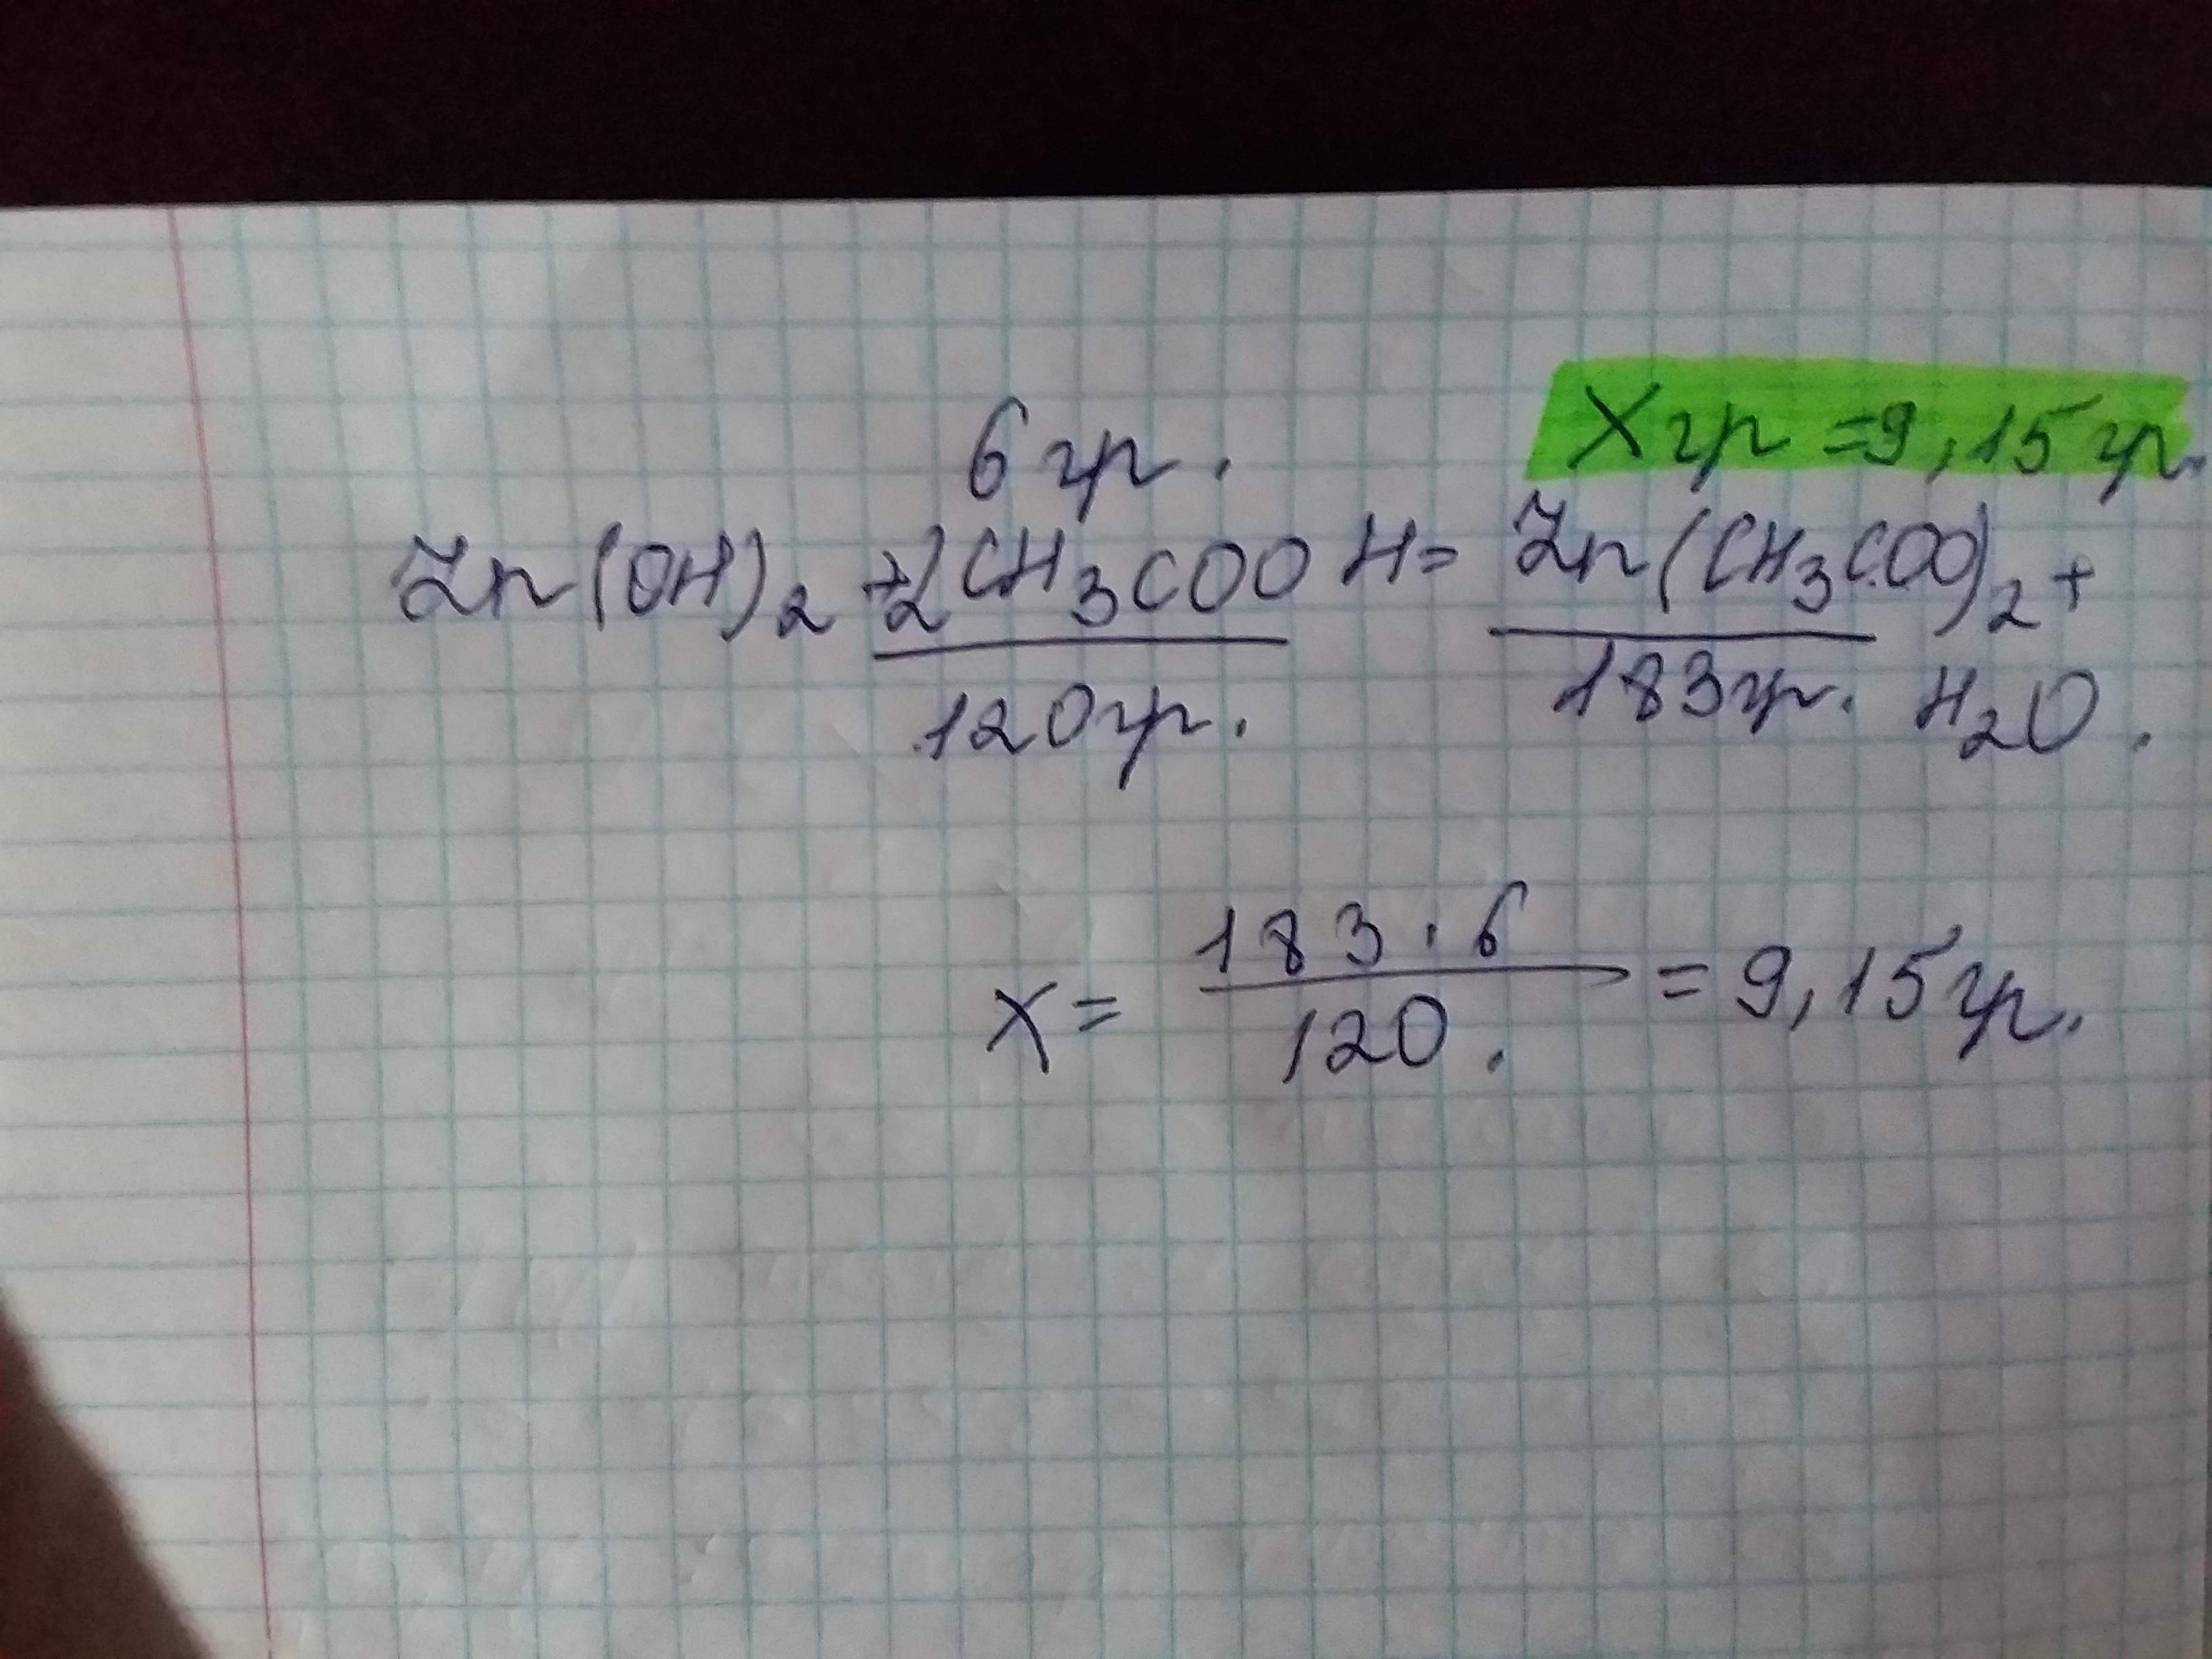 6 гр. Xгр = 9,15 гр.
Zn(OH)₂ + 2CH₃COOH = Zn(CH₃COO)₂ +
120гр. 183гр. H₂O.
X = 183 · 6 / 120. = 9,15 гр.